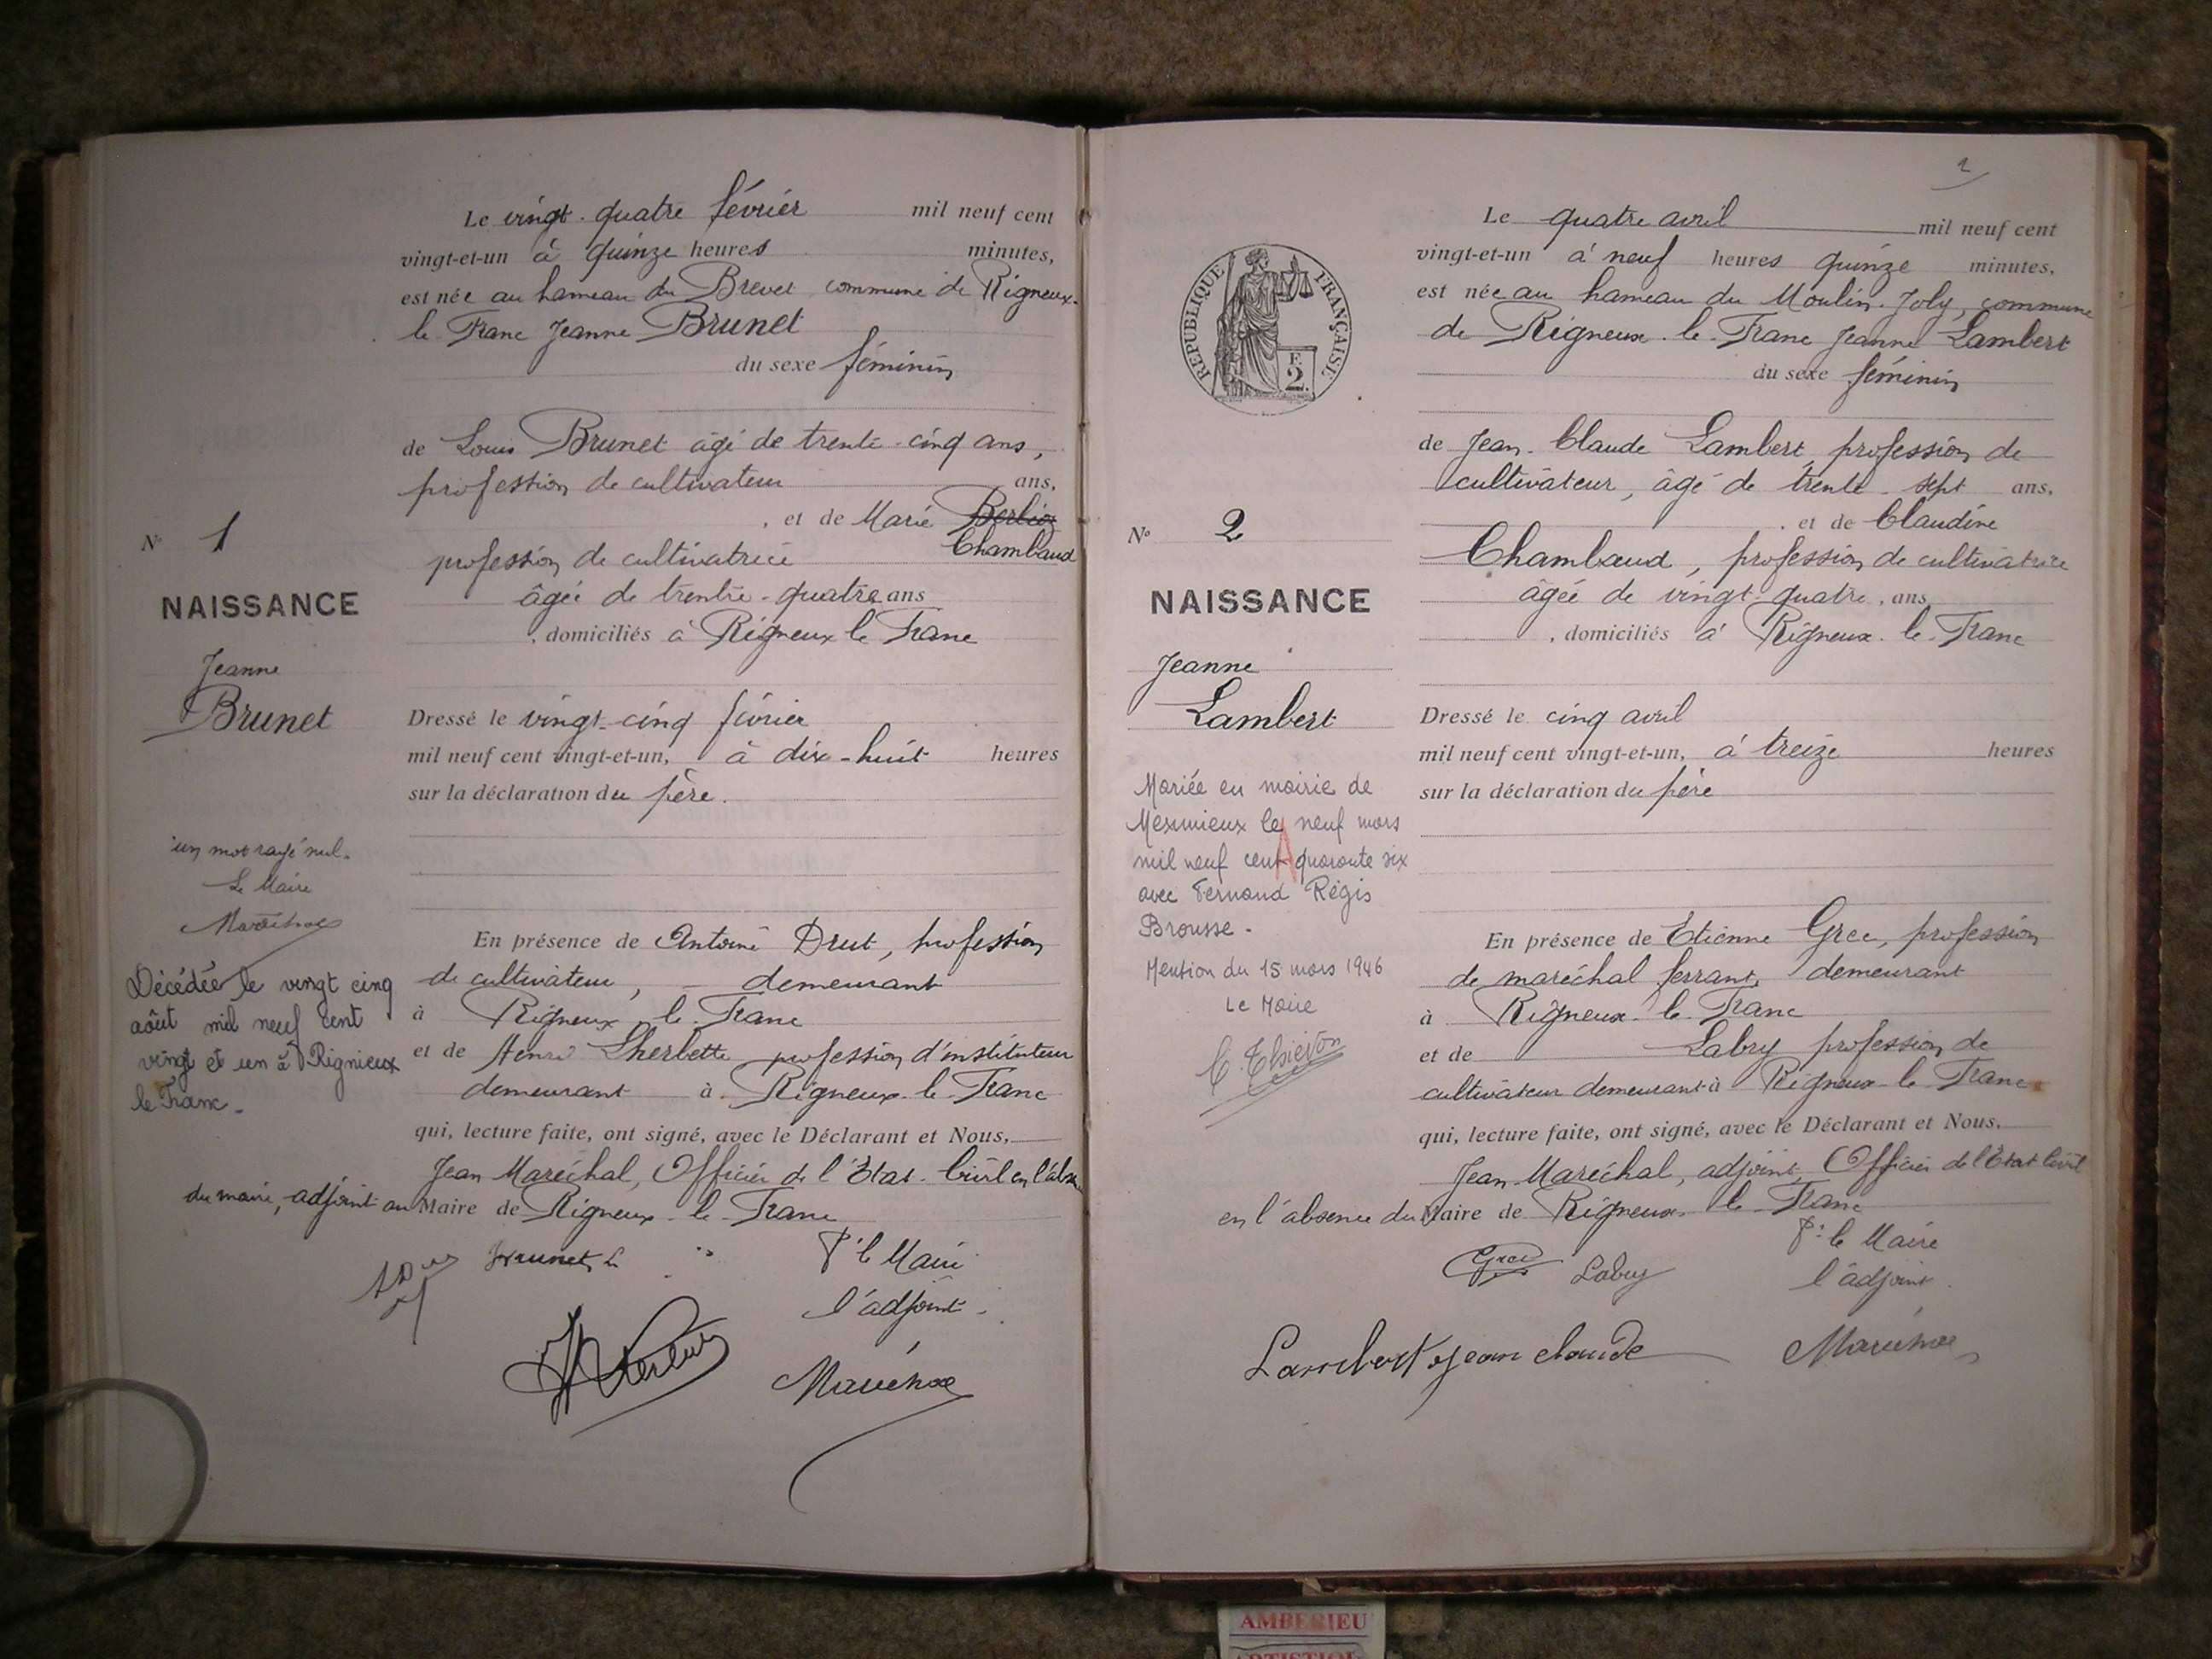 Le vingt-quatre février mil neuf cent
vingt-et-un à quinze heures minutes,
est née au hameau du Brevet commune de Rigneux-
le-Franc Jeanne Brunet
du sexe féminin
de Louis Brunet âgé de trente-cinq ans,
profession de cultivateur ans,
, et de Marie Berlioz
Chambaud
profession de cultivatrice
âgée de trentre-quatre ans
, domiciliés à Rigneux le Franc
Dressé le vingt-cinq février
mil neuf cent vingt-et-un, à dix-huit heures
sur la déclaration du père.
En présence de Antoine Drut, profession
de cultivateur, demeurant
à Rigneux-le-Franc
et de Henri Lherbette profession d'instituteur
demeurant à Rigneux-le-Franc
qui, lecture faite, ont signé, avec le Déclarant et Nous,
Jean Maréchal, Officier de l'Etat-Civil en l'absence
du maire, adjoint au Maire de Rigneux-le-Franc
Brunet L
Pr le Maire
l'adjoint.
Maréchal
No 1
NAISSANCE
Jeanne
Brunet
un mot rayé nul.
Le Maire
Maréchal
Décédée le vingt cinq
août mil neuf cent
vingt et un à Rignieux
le Franc.
2
Le quatre avril mil neuf cent
vingt-et-un à neuf heures quinze minutes,
est née au hameau du Moulin-Joly, commune
de Rigneux-le-Franc Jeanne Lambert
du sexe féminin
de Jean-Claude Lambert, profession de
cultivateur, âgé de trente-sept ans,
, et de Claudine
Chambaud, profession de cultivatrice
âgée de vingt-quatre, ans
, domiciliés à Rigneux-le-Franc
Dressé le cinq avril
mil neuf cent vingt-et-un, à treize heures
sur la déclaration du père
En présence de Etienne Grec, profession
de maréchal ferrant, demeurant
à Rigneux-le-Franc
et de Labry profession de
cultivateur demeurant à Rigneux-le-Franc
qui, lecture faite, ont signé, avec le Déclarant et Nous,
Jean Maréchal, adjoint, Officier de l'Etat Civil
en l'absence du Maire de Rigneux-le-Franc
Pr le Maire
Grec Labry l'adjoint.
Lambert Jean claude Maréchal
REPUBLIQUE FRANÇAISE
F.
2
No 2
NAISSANCE
Jeanne
Lambert
Mariée en mairie de
Meximieux le neuf mars
mil neuf cent quarante six
avec Fernand Régis
Brousse.
Mention du 15 mars 1946
Le Maire
C. Thiévon
AMBERIEU